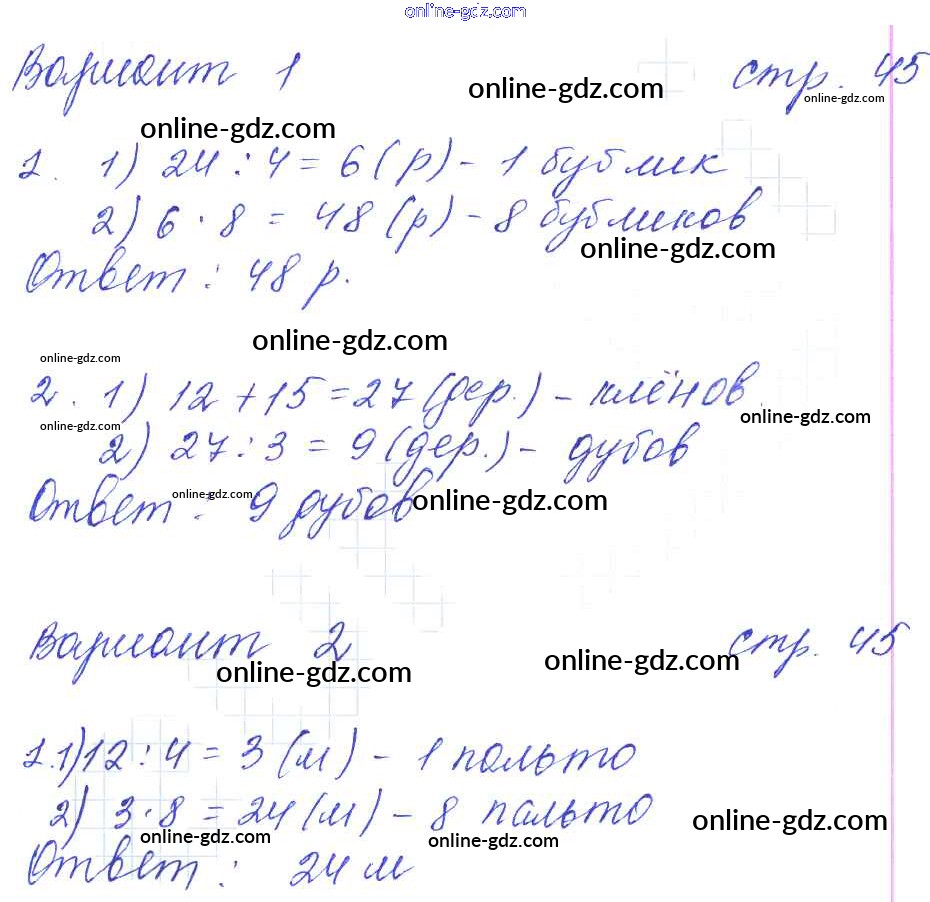 online-gdz.com
Вариант 1 online-gdz.com стр. 45
online-gdz.com online-gdz.com
1. 1) 24 : 4 = 6 (р) - 1 бублик
2) 6 · 8 = 48 (р) - 8 бубликов
online-gdz.com
Ответ : 48 р.
online-gdz.com
online-gdz.com
2. 1) 12 + 15 = 27 (дер.) - клёнов
online-gdz.com online-gdz.com
2) 27 : 3 = 9 (дер.) - дубов
Ответ : 9 дубов
online-gdz.com online-gdz.com
Вариант 2 стр. 45
online-gdz.com online-gdz.com
1. 1) 12 : 4 = 3 (м) - 1 пальто
2) 3 · 8 = 24 (м) - 8 пальто
online-gdz.com online-gdz.com online-gdz.com
Ответ : 24 м